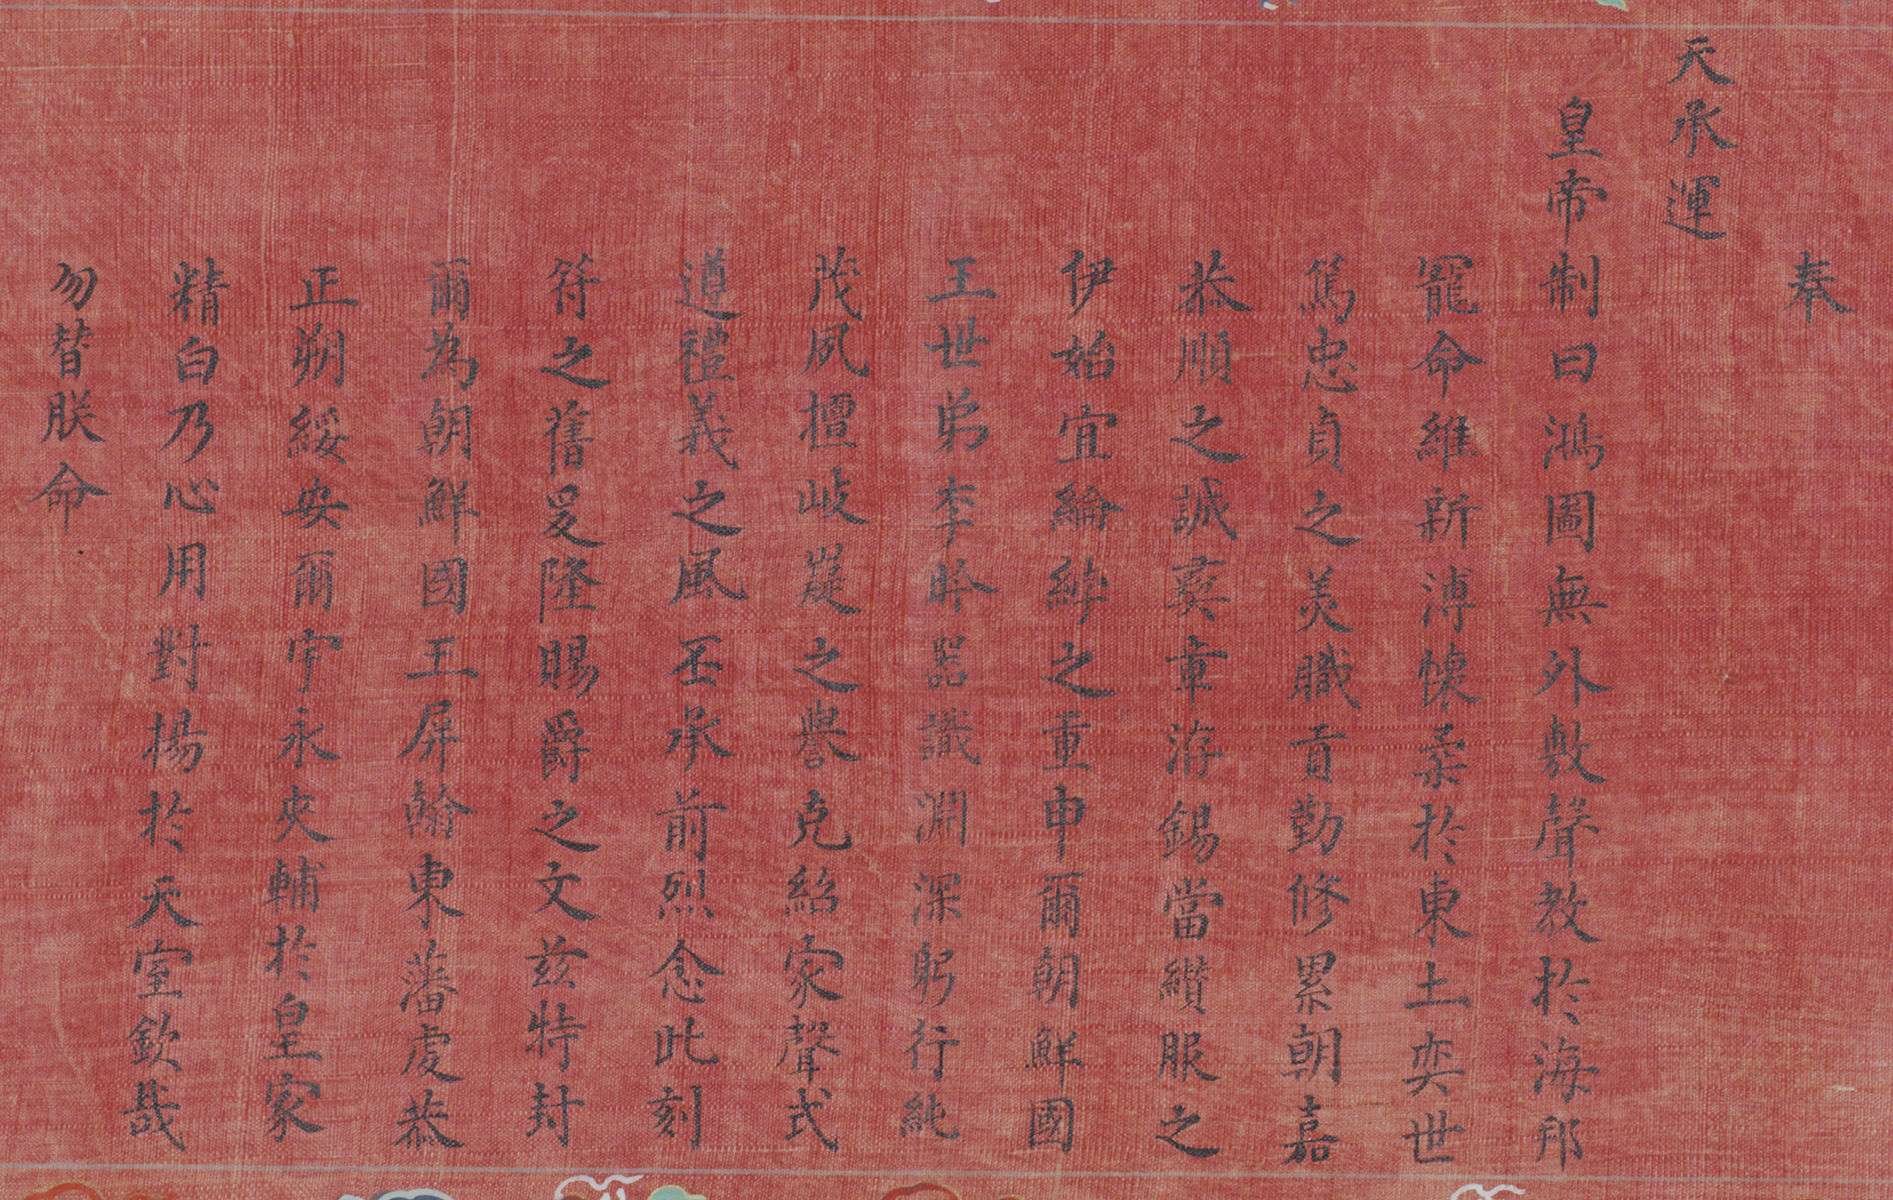 奉
天承運
皇帝制曰鴻圖無外敷聲教於海邦
寵命維新溥懷柔於東土奕世
篤忠貞之美職貢勤修累朝嘉
恭順之誠彛章洊錫當纘服之
伊始宜綸綍之重申爾朝鮮國
王世弟李昑器識淵深躬行純
茂夙擅岐嶷之譽克紹家聲式
遵禮義之風丕承前烈念此刻
符之舊爰隆賜爵之文茲特封
爾為朝鮮國王屏翰東藩虔恭
正朔綏安爾宇永夾輔於皇家
精白乃心用對揚於天室欽哉
勿替朕命